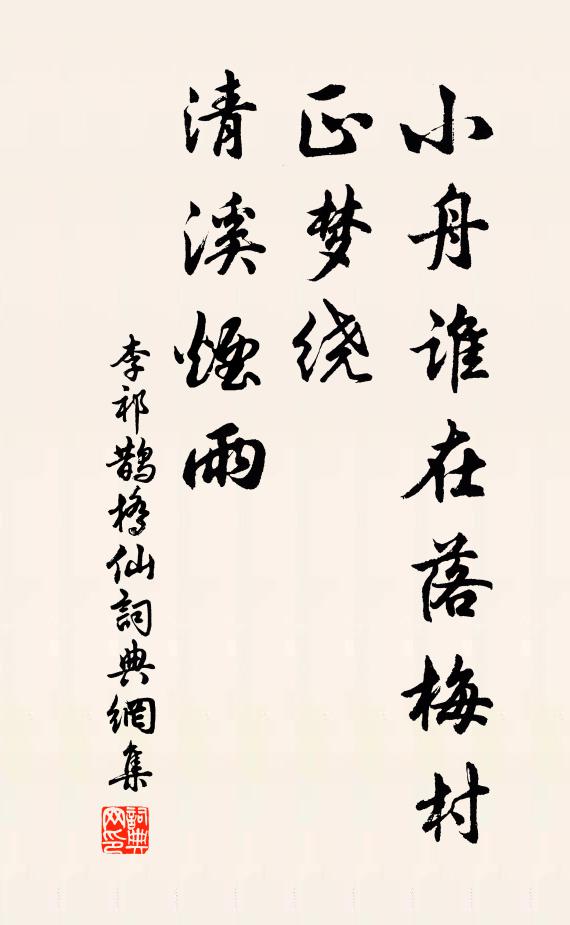 小舟谁在落梅村
正梦绕
清溪烟雨
李祁鹊橋仙詞典網集
詞典
网印